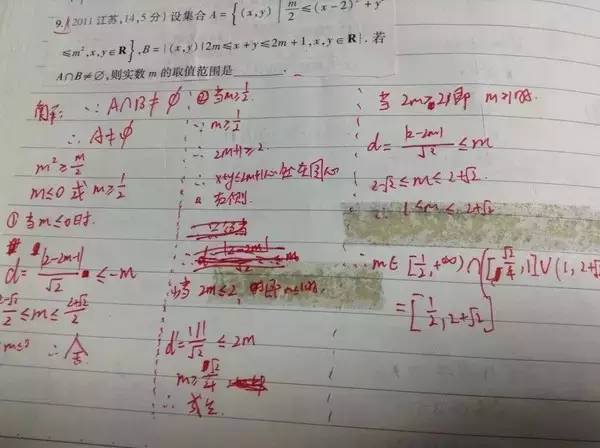 9.(2011江苏,14,5分)设集合A={(x,y)|m/2≤(x-2)²+y²
≤m²,x,y∈R},B={(x,y)|2m≤x+y≤2m+1,x,y∈R}.若
A∩B≠∅,则实数m的取值范围是
解: ∵A∩B≠∅
∴A≠∅
m²≥m/2
m≤0 或 m≥1/2
①当m≤0时.
d=|2-2m-1|/√2≤-m
2-√2/2≤m≤2+√2/2
m≤0 ∴舍
②当m≥1/2.
∵m≥1/2
∴2m+1≥2.
∴x+y≤2m+1
右侧.
当2m≤2,即m≤1时.
d=|1|/√2≤2m
m≥√2/4
∴
当2m≥2即m≥1时.
d=|2-2m|/√2≤m
2-√2≤m≤2+√2
∴1≤m≤2+√2
∴m∈[1/2,+∞)∩([√2/4,1]∪(1,2+√2
=[1/2,2+√2]